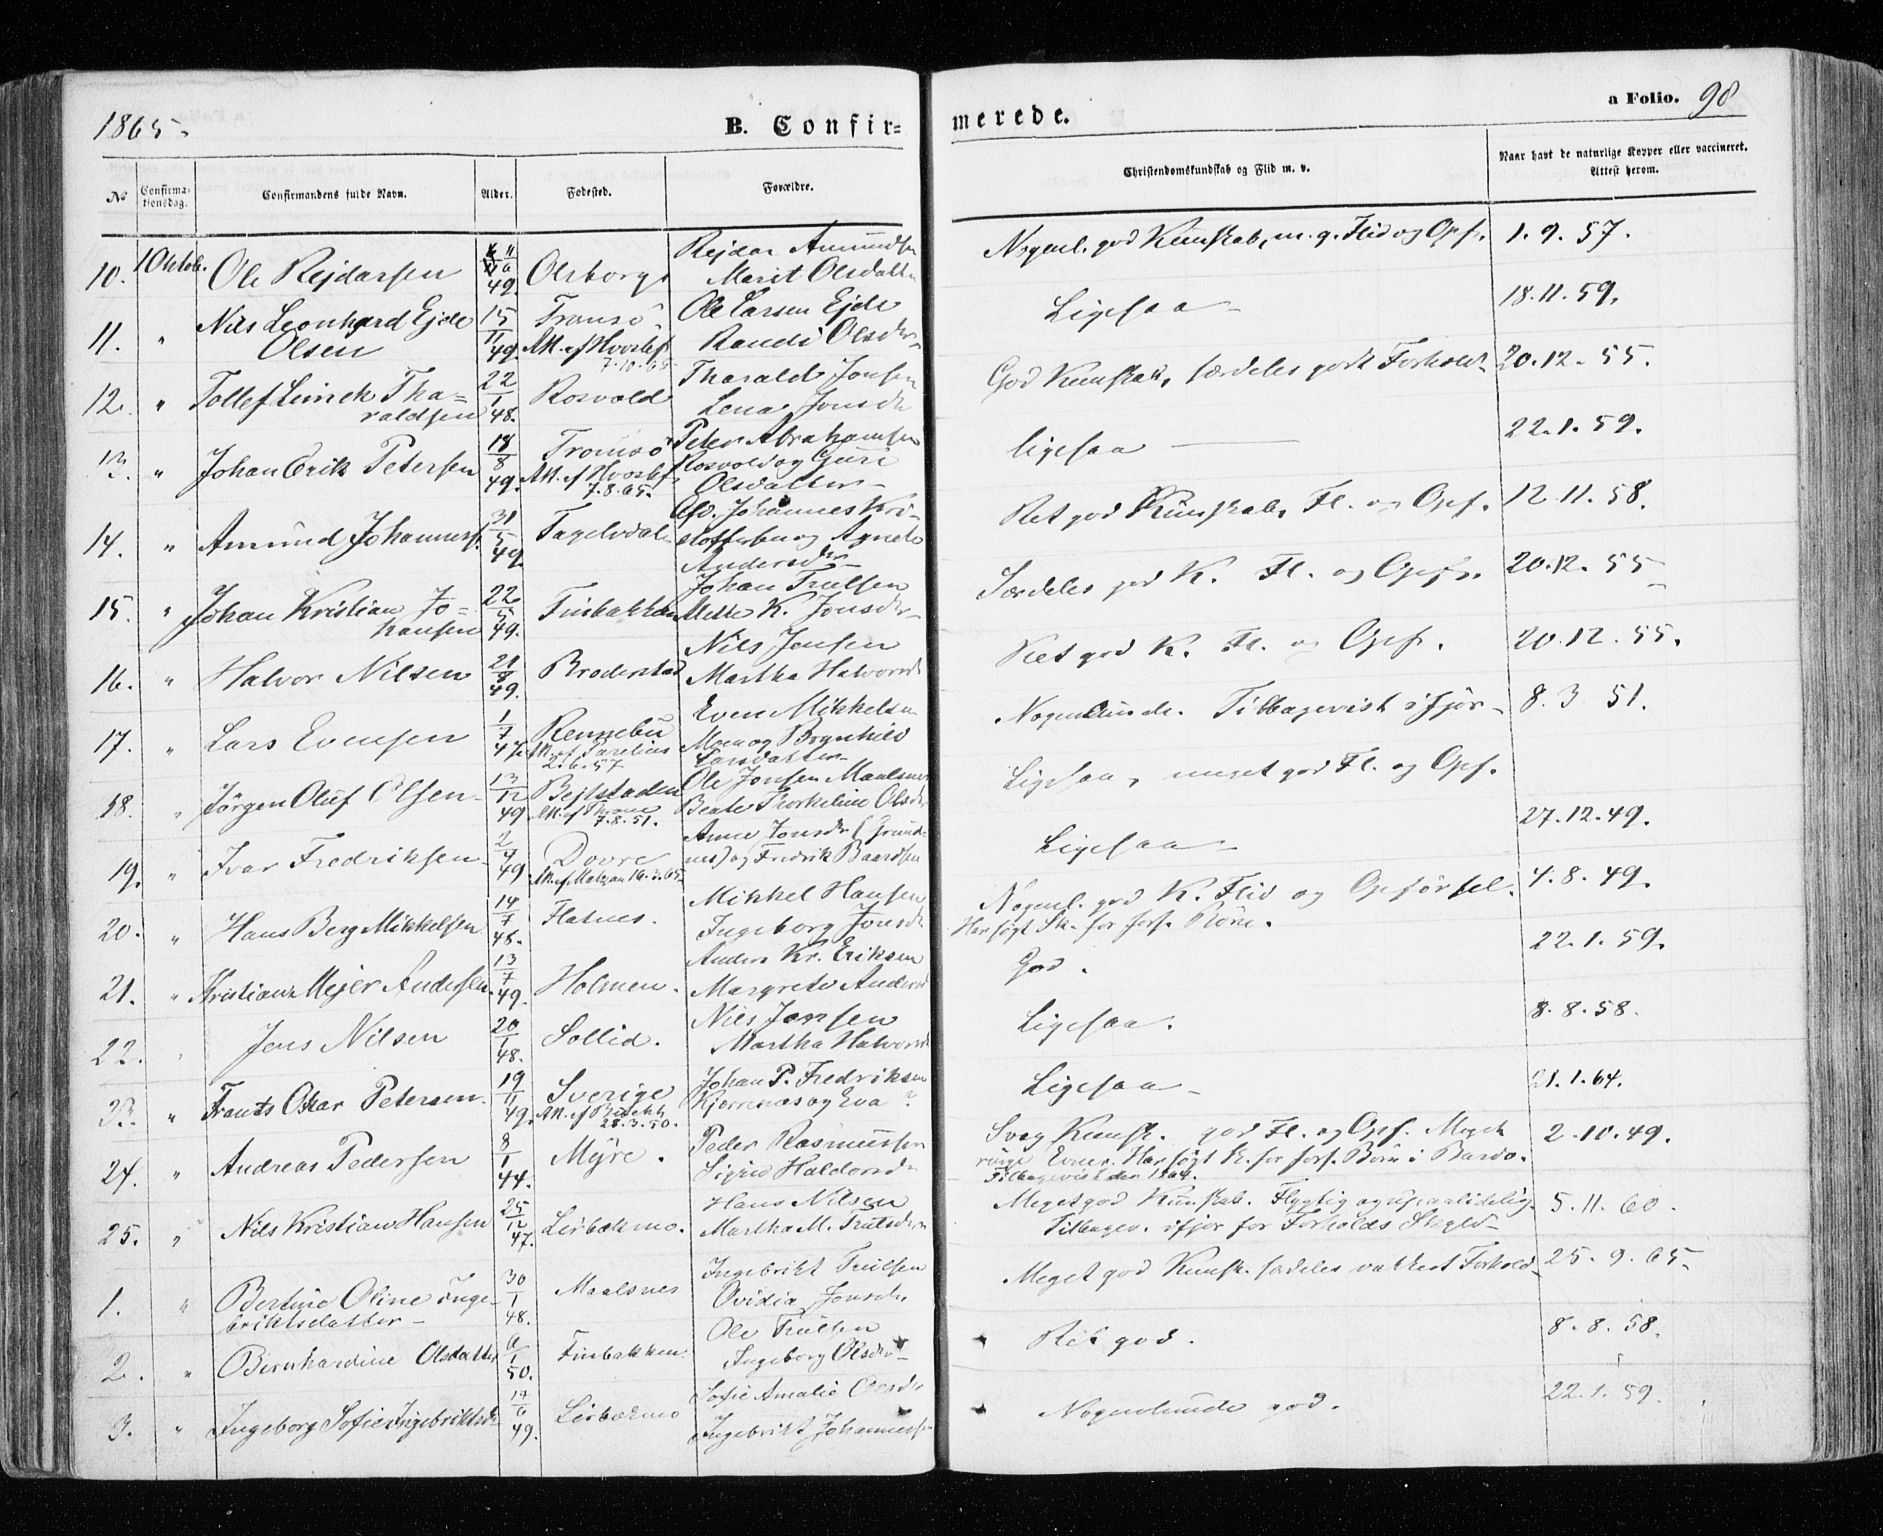 1865.
B. Confir=
merede.
a Folio. 98
No
Confirma-
tionsdag.
Confirmandens fulde Navn.
Alder.
Fødested.
Forældre.
Christendomskundskab og Flid m. v.
Naar havt de naturlige Kopper eller vaccineret.
Attest herom.
10. 1 Oktob. Ole Rejdarsen 49. Olsborg Rejdar Amundsen
Marit Olsdatter
Nogenl. god Kunskab, m. g. Flid og Opf. 1. 9. 57.
11. " Nils Leonhard Ejde
Olsen 15/11 49. Tromsø
Att. af Hvoslef
7.10.65
Ole Larsen Ejde
Randi Olsdtr
Ligesaa 18. 11. 59.
12. " Tollef Lunek Tha=
raldsen 22/1 48. Rosvold Tharald Jonsen
Lena Jonsdr
God Kunskab, særdeles godt Forhold 20. 12. 55.
13. " Johan Erik Petersen 18/8 49. Tromsø
Att. af Hvoslef
7.8.65.
Peter Abrahamsen
Rosvold og Guri
Olsdatter
ligesaa 22. 1. 59.
14. " Amund Johannesf. 31/5 49 Fagelvdal Johannes Kri-
stoffersen og Agnete
Andersdtr
Ret god Kunskab, Fl. og Opf. 12 11. 58.
15. " Johan Kristian Jo=
hansen 22/5 49. Finbakken Johan Trulsen
Mette K. Jonsdr
Særdeles god K. Fl. og Opf. 20. 12. 55
16. " Halvor Nilsen 21/8 49. Broderstad Nils Jensen
Martha Halvorsd
Ret god K. Fl. og Opf. 20. 12. 55.
17. " Lars Evensen 1/7 47. Rennebu
Att. af Parelius
2.6.57
Even Mikkelsen
Moen og Brynhild
Larsdatter
Nogenlunde. Tilbagevist ifjor 8. 3. 51.
18. " Jørgen Oluf Olsen 13/12 49 Bejtstaden
Att. af Thrane
7.8.51.
Ole Jonsen Maalsnes
Beate Thorkeline Olsdr
Ligesaa, meget god Fl. og Opf.
27. 12. 49.
19. " Ivar Fredriksen 2/4 49 Dovre
Att. af Malzau 16.3.65
Anne Jonsdr (Grund-
nes) og Fredrik Baardsen
Ligesaa
20. " Hans Berg Mikkelsen 14/7 48. Flatnes. Mikkel Hansen
Ingeborg Jonsdr
Nogenl. god K. Flid og Opførsel.
Har søgt Sk. for fors. Børn. 4. 8. 49.
21. " Kristian Mejer Andersen. 13/7 49. Holmen. Anders Kr. Eriksen
Margrete Andersd
God. 22. 1. 59.
22. Jens Nilsen 20/1 48. Sollid. Nils Jensen
Martha Halvorsd
Ligesaa. 8. 8. 58.
23. " Frants Oskar Petersen. 19/11 49. Sverige
28.3.50.
Johan P. Fredriksen
Kjerresnes og Eva ?
Ligesaa 21. 1. 64.
24. " Andreas Pedersen 8/1 44. Myre. Peder Rasmussen
Sigrid Haldorsdr
Svag Kunsk. god Fl. og Opf. Meget
ringe Evner. Har søgt Sk. for fors. Børn i Bardo.
Tilbagevist der 1864. 2. 10. 49.
25. " Nils Kristian Hansen 25/12 47. Leirbækmo. Hans Nilsen
Martha M. Trulsdr
Meget god Kunskab. Flygtig og upaalidelig.
Tilbagev. ifjor for Forholds Skyld 5. 11. 60.
1. " Bertine Oline Inge-
briktsdatter 30/1 48. Maalsnes Ingebrikt Trulsen
Ovidia Jonsdr
Meget god Kunsk. særdeles vakkert Forhold 25. 9. 65
2. " Bernhardine Olsdatter 6/1 50. Finbakken. Ole Trulsen
Ingeborg Olsdr
Ret god. 8. 8. 58.
3. " Ingeborg Sofie Ingebriktsdr 17/6 49. Leirbækmo Sofie Amalie Olsdr
Ingebrikt Johannessen
Nogenlunde god. 22. 1. 59.